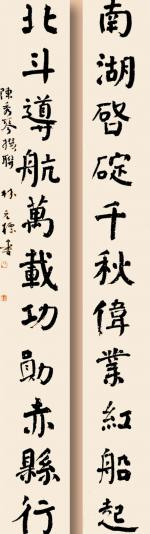 南湖啓碇千秋偉業紅船起
北斗導航萬載功勛赤縣行
陳秀琴撰聯